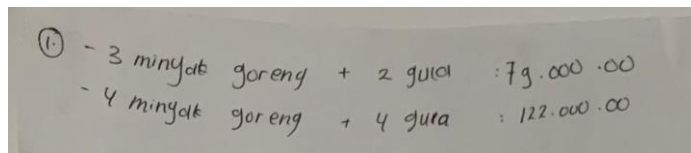 1. - 3 minyak goreng + 2 gula : 79.000.00
- 4 minyak goreng + 4 gula : 122.000.00